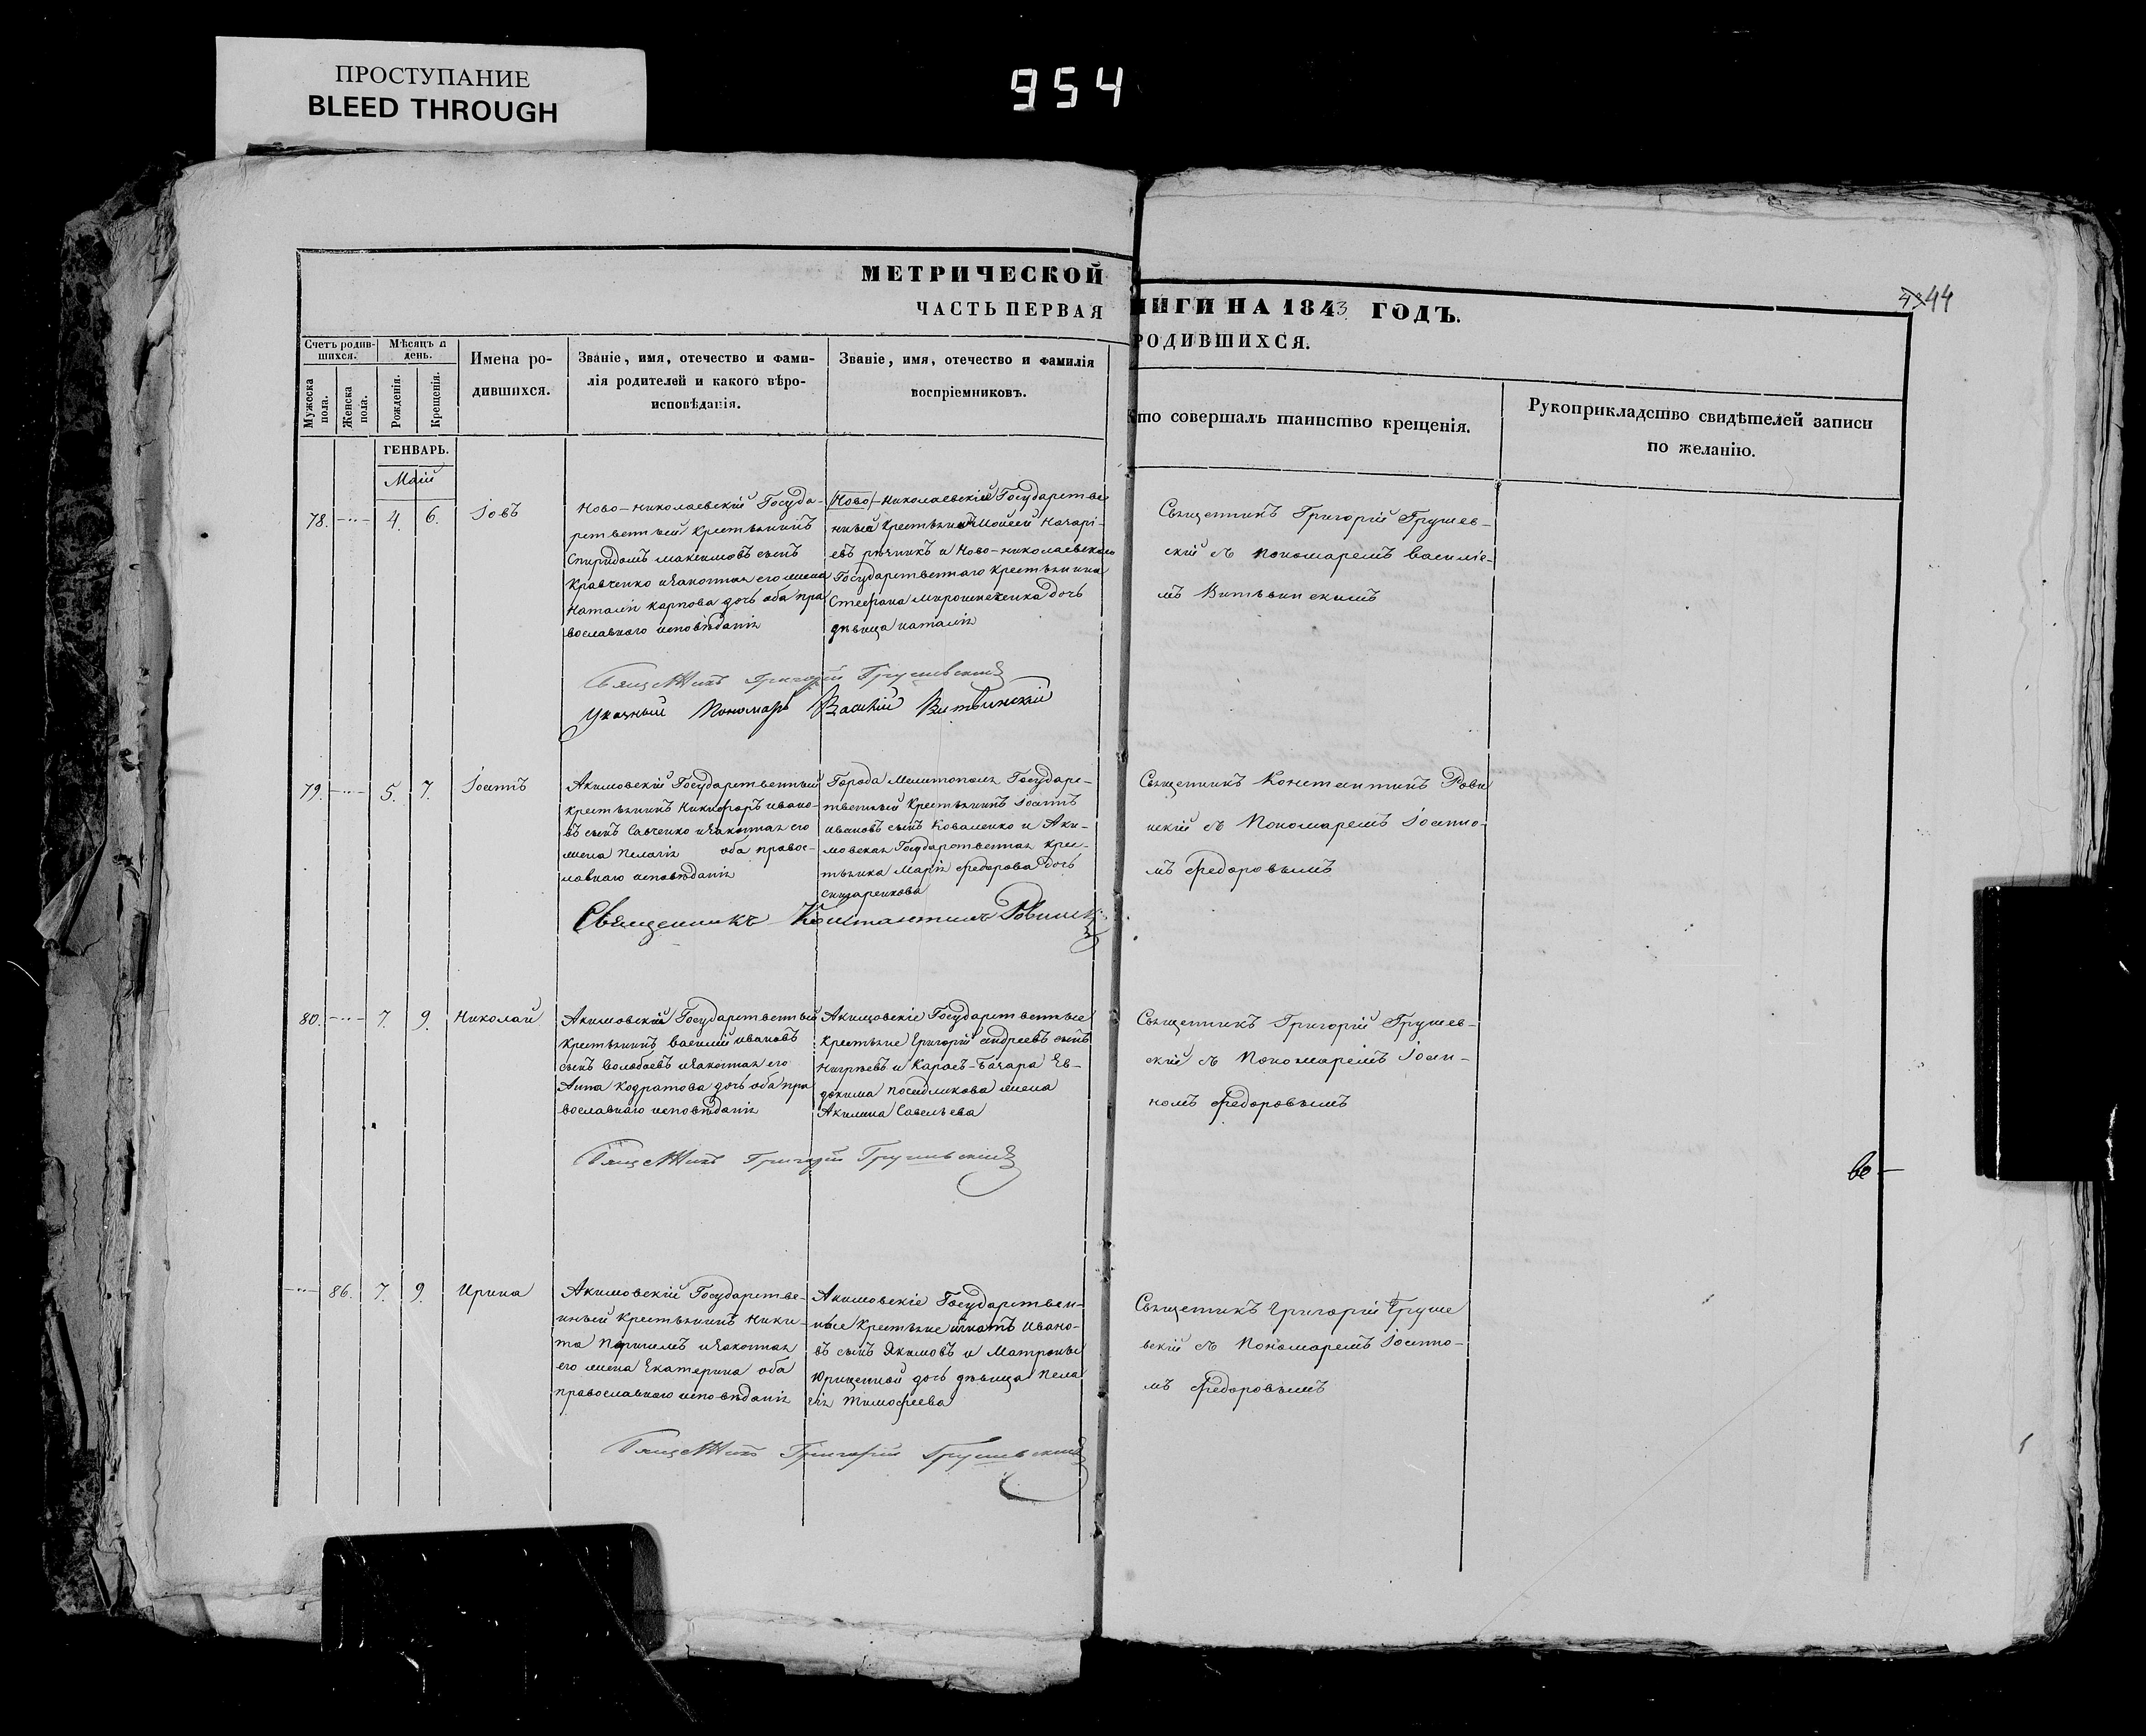 ПРОСТУПАНИЕ
BLEED THROUGH
954
МЕТРИЧЕСКОЙ
ЧАСТЬ ПЕРВАЯ
НИГИ НА 1843 ГОДЪ.
РОДИВШИХСЯ.
44
Счетъ родив-
шихся.
Мѣсяцъ и
день.
Мужеска
пола.
Женска
пола.
Рожденія.
Крещенія.
Имена ро-
дившихся.
Званіе, имя, отечество и фами-
лія родителей и какого вѣро-
исповѣданія.
Званіе, имя, отечество и фамилія
воспріемниковъ.
Кто совершалъ таинство крещенія.
Рукоприкладство свидѣтелей записи
по желанію.
ГЕНВАРЬ.
Маій
78. 4. 6. Іовъ
Ново-Николаевскій Госуда-
рственный крестьянинъ
Спиридонъ Максимовъ сынъ
Кравченко и законная его жена
Наталія Карпова дочь оба пра
вославнаго исповѣданія
Ново-Николаевскій Государстве
нный крестьянинъ Моисей
и Ново-Николаевскаго
Государственнаго крестьянина
Стефана Мирошниченка дочь
дѣвица Наталія
Священникъ Григорій Грушев-
скій съ пономаремъ Василіе-
мъ Витвинскимъ
Священникъ Григорій Грушевскій
Указный Пономарь Василій Витвинскій
79. 5. 7. Іоаннъ
Акимовскій Государственный
крестьянинъ Никифоръ Ивано-
въ сынъ Савченко и законная его
жена Пелагія оба правос-
лавнаго исповѣданія
Города Мелитополя Государс-
твенный крестьянинъ Іоаннъ
Ивановъ сынъ Коваленко и Аки-
мовская Государственная крес-
тьянка Марія Федорова дочь
Священникъ Константинъ Рови
нскій съ Пономаремъ Іоанно-
мъ Федоровымъ
Священникъ Константинъ Ровинскі
80. 7. 9. Николай
Акимовскій Государственный
крестьянинъ Василій Ивановъ
сынъ Волобоевъ и законная его
Анна Кодратова дочь оба пра
вославнаго исповѣданія
Акимовскіе Государственные
крестьяне Григорій Андреевъ сынъ
и Ев-
докима жена
Акилина Савельева
Священникъ Григорій Грушев-
скій съ Пономаремъ Іоан-
номъ Федоровымъ
Священникъ Григорій Грушевскій
86. 7. 9. Ирина
Акимовскій Государстве-
нный крестьянинъ Ники-
та и законная
его жена Екатерина оба
православнаго исповѣданія
Акимовскіе Государствен-
ные крестьяне Игнатъ Ивано-
въ сынъ Якимовъ и Матроны
дочь дѣвица Пела
гія Тимофеева
Священникъ Григорій Груше
вскій съ Пономаремъ Іоанно-
мъ Федоровымъ
Священникъ Григорій Грушевскій